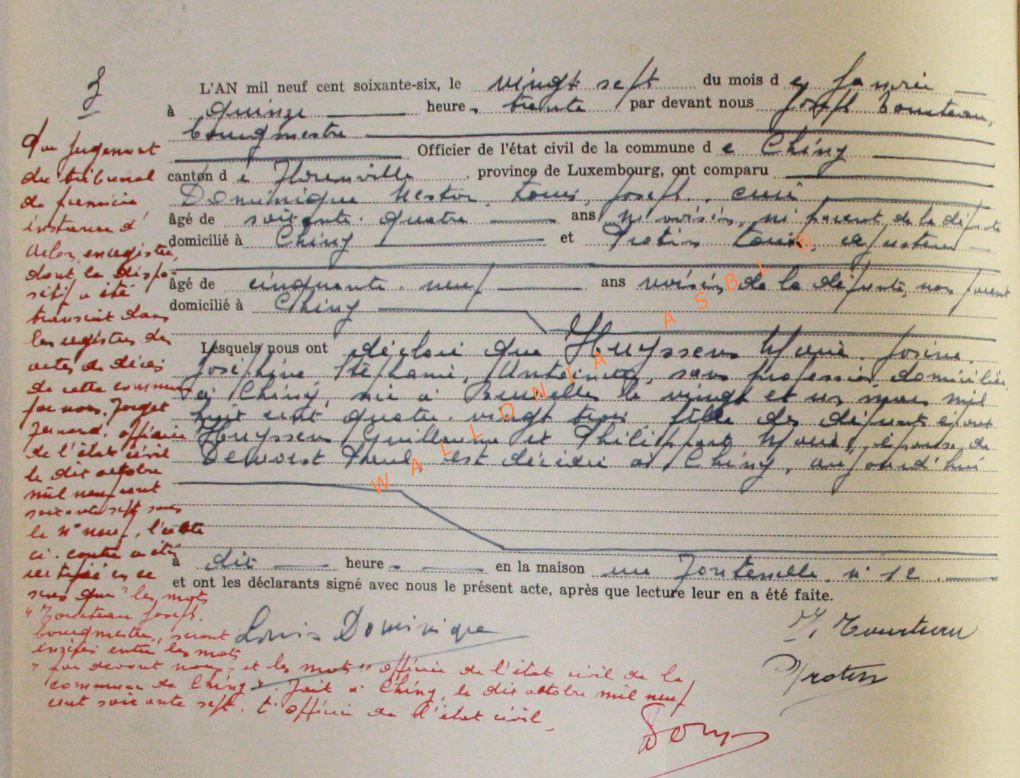 3
L'AN mil neuf cent soixante-six, le vingt sept du mois d e janvier
à quinze heures trente par devant nous Joseph Tourteau,
bourgmestre
Officier de l'état civil de la commune d e Chiny
canton d e Florenville, province de Luxembourg, ont comparu
Dominique Nestor, Louis, Joseph, curé
âgé de soixante quatre ans, ni voisin, ni parent de la défunte
domicilié à Chiny et Protin Louis, ajusteur
âgé de cinquante neuf ans voisin de la défunte, non parent
domicilié à Chiny
Lesquels nous ont déclaré que Huyssens Marie, Josine,
Joséphine, Stéphanie, Antoinette, sans profession, domiciliée
à Chiny, née à Bruxelles le vingt et un mars mil
huit cent quatre-vingt trois fille des défunts époux
Huyssens Guillaume et Philippart Marie, épouse de
est décédée à Chiny, aujourd'hui
à dix heures en la maison rue Fontenelle, n° 12
et ont les déclarants signé avec nous le présent acte, après que lecture leur en a été faite.
Louis Dominique
J. Tourteau
Protin
Par jugement
du tribunal
de première
instance d'
Arlon, enregistré,
dont le dispo-
sitif a été
transcrit dans
les registres des
actes de décès
de cette commune
par nous, officier
de l'état civil
le dix octobre
mil neuf cent
soixante sept sous
le n° neuf, l'acte
ci-contre a été
rectifié en ce
sens que "les mots
"Tourteau Joseph,
bourgmestre,, seront
insérés entre les mots
"par devant nous" et les mots "officier de l'état civil de la
commune de Chiny". Fait à Chiny, le dix octobre mil neuf
cent soixante sept. L'officier de l'état civil
WALLONIA ASBL ©